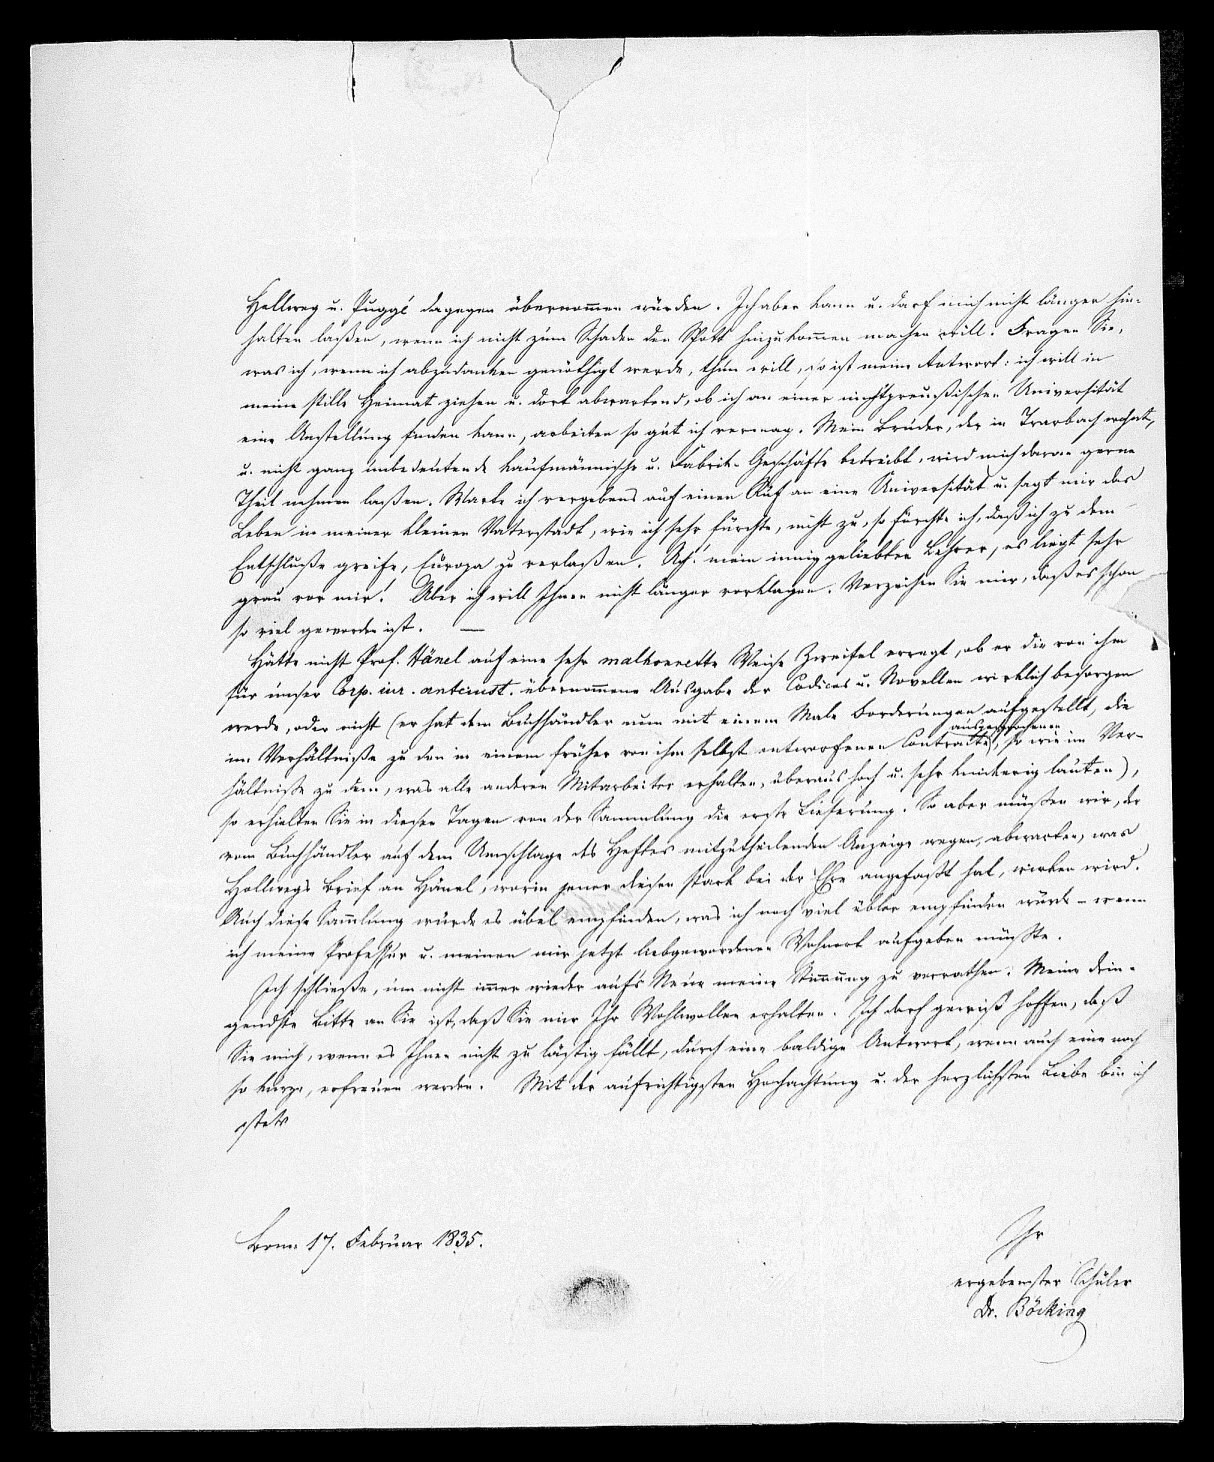 Hollweg u. Puggé dagegen übernommen würden. Ich aber kann u. darf mich nicht länger hin-
halten laßen, wenn ich nicht zum Schaden den Spott hinzukommen machen will. Fragen Sie,
was ich, wenn ich abzudanken genöthigt werde, thun will, so ist meine Antwort: ich will in
meine stille Heimat ziehen u. dort abwartend, ob ich an einer nichtpreußischen Universität
eine Anstellung finden kann, arbeiten so gut ich vermag. Mein Bruder, der in Trarbach wohnt,
u. nicht ganz unbedeutende kaufmännische u. Fabrik-Geschäfte betreibt, wird mich daran gerne
Theil nehmen laßen. Warte ich vergebens auf einen Ruf an eine Universität u. sagt mir das
Leben in meiner kleinen Vaterstadt, wie ich sehr fürchte, nicht zu, so fürchte ich, daß ich zu dem
Entschluße greife, Europa zu verlaßen. Ach! mein innig geliebter Lehrer, es liegt sehr
grau vor mir! Aber ich will Ihnen nicht länger vorklagen. Verzeihen Sie mir, daß es schon
so viel geworden ist. —
Hätte nicht Prof. Hänel auf eine sehr malhonnette Weise Zweifel erregt, ob er die von ihm
für unser Corp. iur. anteiust. übernommene Ausgabe der Codices u. Novellen wirklich besorgen
werde, oder nicht (er hat dem Buchhändler nun mit einem Male Forderungen aufgestellt, die
im Verhältniße zu den in einem früher von ihm selbst entworfenen Contracte ausgesprochenen, so wie im Ver-
hältniße zu dem, was alle anderen Mitarbeiter erhalten, überaus hoch u. sehr knickerig lauten),
so erhielten Sie in diesen Tagen von der Sammlung die erste Lieferung. So aber müßen wir, der
vom Buchhändler auf dem Umschlage des Heftes mitzutheilenden Anzeige wegen, abwarten, was
Hollwegs Brief an Hänel, worin jener diesen stark bei der Ehre angefaßt hat, wirken wird.
Auch diese Sammlung würde es übel empfinden, was ich noch viel übler empfinden würde – wenn
ich meine Professur u. meinen mir jetzt liebgewordenen Wohnort aufgeben müßte.
Ich schließe, um nicht immer wieder aufs Neue meine Stimmung zu verrathen. Meine drin-
gendste Bitte an Sie ist, daß Sie mir Ihr Wohlwollen erhalten. Ich darf gewiß hoffen, daß
Sie mich, wenn es Ihnen nicht zu lästig fällt, durch eine baldige Antwort, wenn auch eine noch
so kurze, erfreuen werden. Mit der aufrichtigsten Hochachtung u. der herzlichsten Liebe bin ich
stets
Bonn 17. Februar 1835.
Ihr
ergebenster Schüler
Dr. Böcking